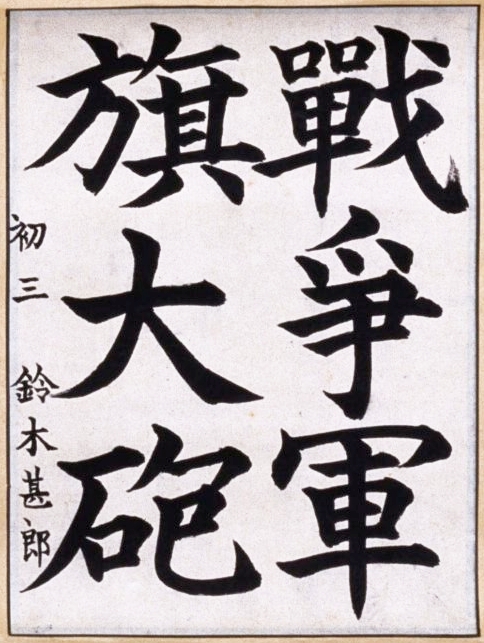 戰爭軍
旗大砲
初三 鈴木甚郎